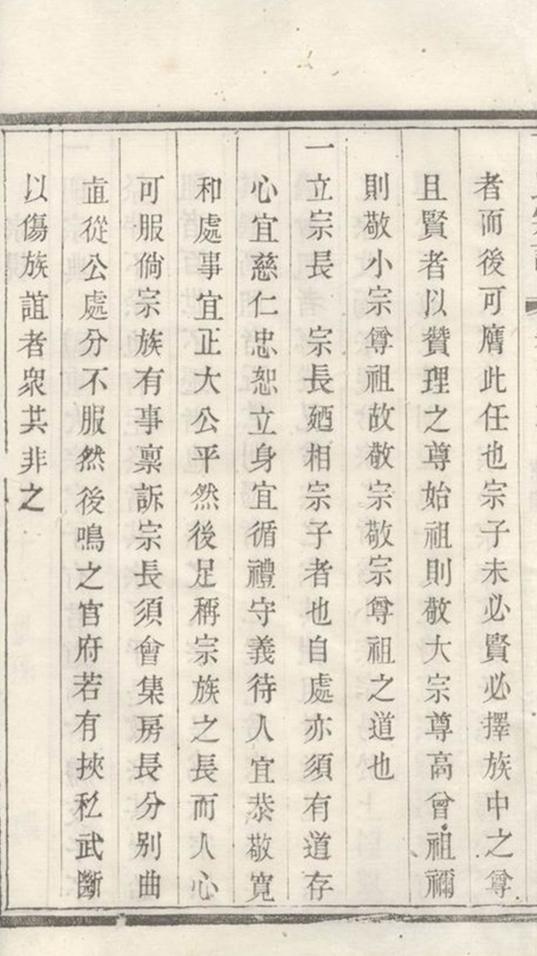 者而後可膺此任也宗子未必賢必擇族中之尊
且賢者以贊理之尊始祖則敬大宗尊高曾祖禰
則敬小宗尊祖故敬宗敬宗尊祖之道也
一立宗長　宗長廼相宗子者也自處亦須有道存
心宜慈仁忠恕立身宜循禮守義待人宜恭敬寬
和處事宜正大公平然後足稱宗族之長而人心
可服倘宗族有事稟訴宗長須會集房長分别曲
直從公處分不服然後鳴之官府若有挾私武斷
以傷族誼者衆共非之